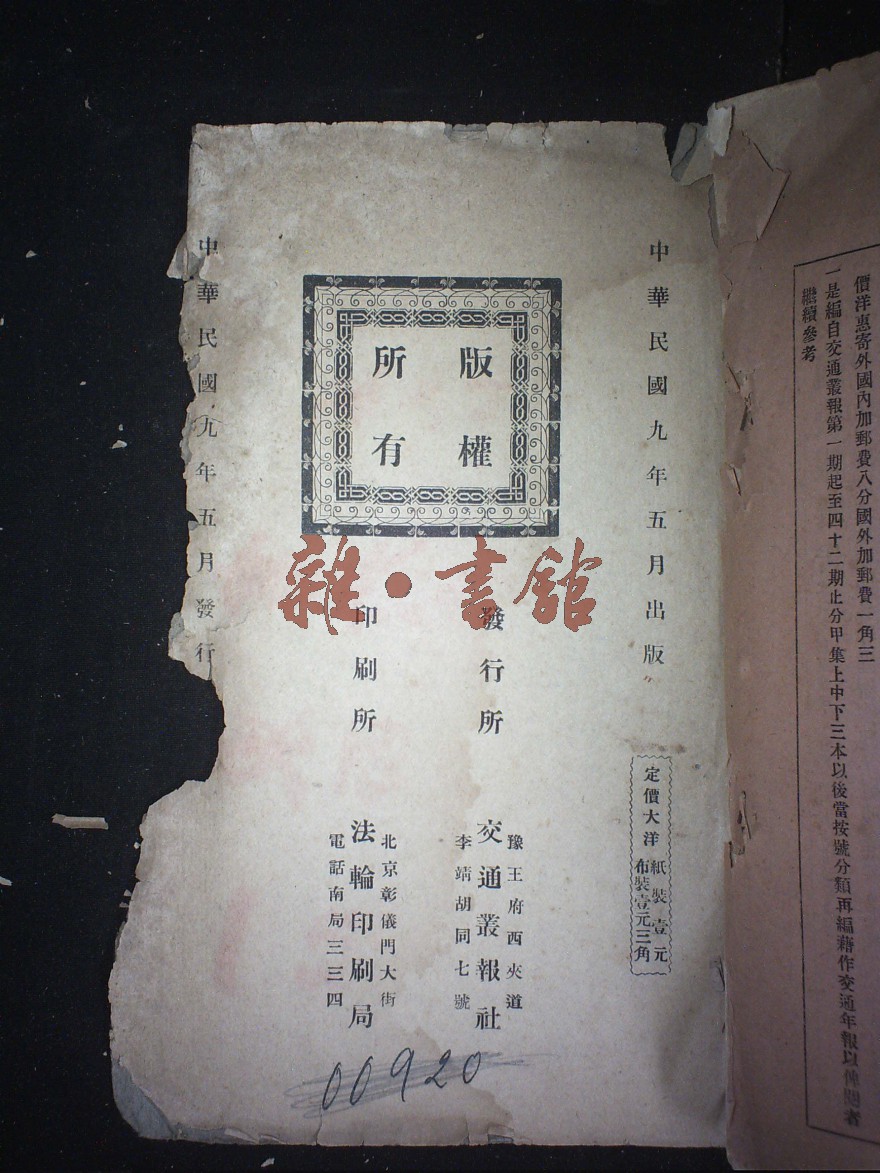 價洋惠寄外國內加郵費八分國外加郵費一角三
一是編自交通叢報第一期起至四十二期止分甲集上中下三本以後當按號分類再編藉作交通年報以俾閱者
繼續參考
中華民國九年五月出版
定價大洋
紙裝壹元
布裝壹元三角
版權
所有
發行所
豫王府西夾道
交通叢報社
李靖胡同七號
印刷所
北京彰儀門大街
法輪印刷局
電話南局三三四
中華民國九年五月發行
雜·書館
00920